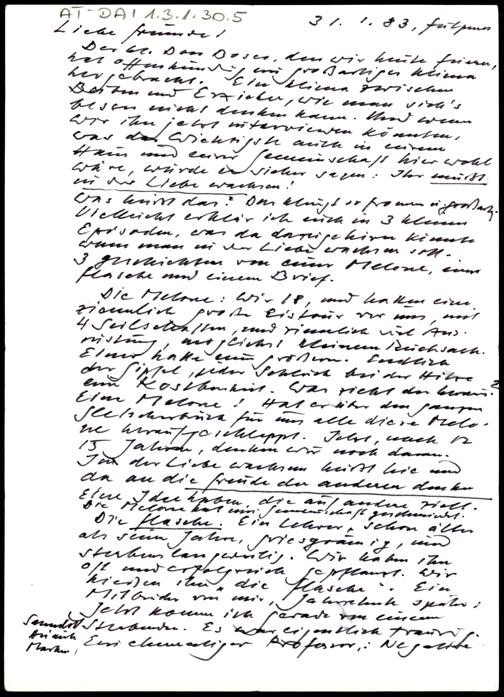 AT-DAI 1.3.1.30.5
31.1.83, Fulpmes
Liebe Freunde!
Der hl. Don Bosco, den wir heute feiern,
hat offenkundig ein großartiges Klima
hergebracht. Ein Klima zwischen
und Erzieher, wie man sich's
besser nicht denken kann. Und wenn
wir ihn jetzt interviewen könnten,
was das Wichtigste auch in einem
Haus und einer Gemeinschaft hier wohl
wäre, würde er sicher sagen: Ihr müßt
in der Liebe wachsen!
Was heißt das? Das klingt so fromm u. großartig.
Vielleicht erklär ich euch in 3 kleinen
Episoden, was da dazugehören könnte
wenn man in der Liebe wachsen soll.
3 Geschichten von einer Melone, einer
Flasche und einem Brief.
Die Melone: Wir 18, und hatten eine
ziemlich große Eistour vor uns, mit
4 Seilschaften, und ziemlich viel Aus-
rüstung, möglichst kleinem Rucksack.
Einer hatte ein größern. Endlich
der Gipfel, jeder Schluck bei der Hitze
eine Kostbarkeit. Was zieht der heraus?
Eine Melone! Hat er über den ganzen
Gletscherbruch für uns alle diese Melo-
ne heraufgeschleppt. Jetzt, nach
15 Jahren, denken wir noch daran.
In der Liebe wachsen heißt hie und
da an die Freude der anderen denken
Eine Idee haben, die auf andere zielt.
Die Melone hat mir Gemeinschaft geschmeckt.
Die Flasche: Ein Lehrer, schon älter
als sein Jahre, griesgrämig, und
sterbenslangweilig. Wir haben ihn
oft und erfolgreich gepflanzt. Wir
hießen ihn "die Flasche". Ein
Mitbruder von mir, Jahrzehnte später:
Jetzt komm ich gerade von einem
Sterbenden. Es war eigentlich traurig.
Ein ehemaliger Professor,: Negative